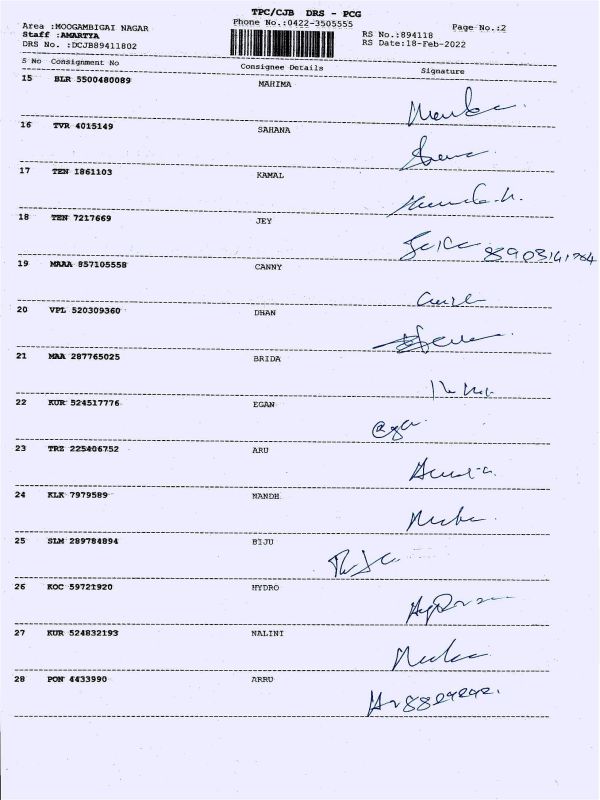 TPC/CJB DRS - PCG
Area :MOOGAMBIGAI NAGAR Phone No.:0422-3505555 Page No.:2
Staff :AMARTYA RS No.:894118
DRS No. :DCJB89411802 RS Date:18-Feb-2022
S No Consignment No Consignee Details Signature
15 BLR 5500480089 MAHIMA
16 TVR 4015149 SAHANA
17 TEN 1861103 KAMAL
18 TEN 7217669 JEY
19 MAAA 857105558 CANNY
20 VPL 520309360 DHAN
21 MAA 287765025 BRIDA
22 KUR 524517776 EGAN
23 TRZ 225406752 ARU
24 KLK 7979589 NANDH
25 SLM 289784894 BIJU
26 KOC 59721920 HYDRO
27 KUR 524832193 NALINI
28 PON 4433990 ARRU